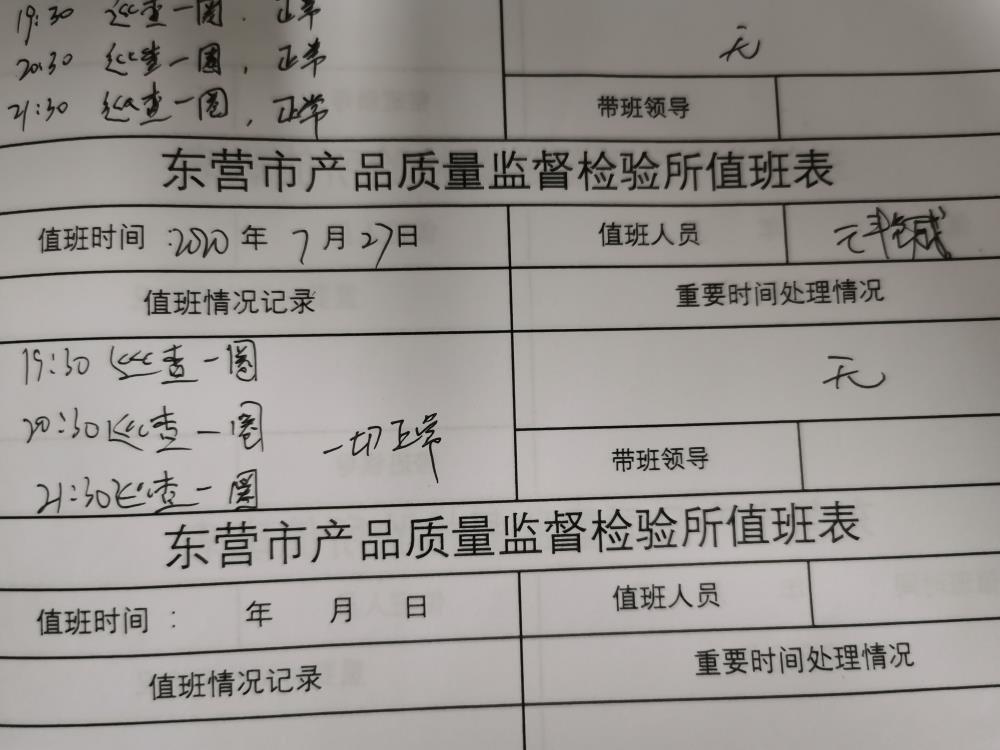 19:30 巡查一圈. 正常
20:30 巡查一圈, 正常
无
21:30 巡查一圈, 正常
带班领导
东营市产品质量监督检验所值班表
值班时间:2020年 7月27日 值班人员
值班情况记录 重要时间处理情况
19:30 巡查一圈
无
20:30 巡查一圈 一切正常
带班领导
21:30 巡查一圈
东营市产品质量监督检验所值班表
值班时间: 年 月 日 值班人员
值班情况记录 重要时间处理情况